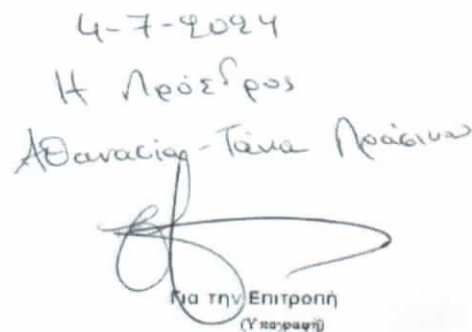 4-7-2024
Η Πρόεδρος
Αθανασία-Τάνια
Για την Επιτροπή
(Υπογραφή)